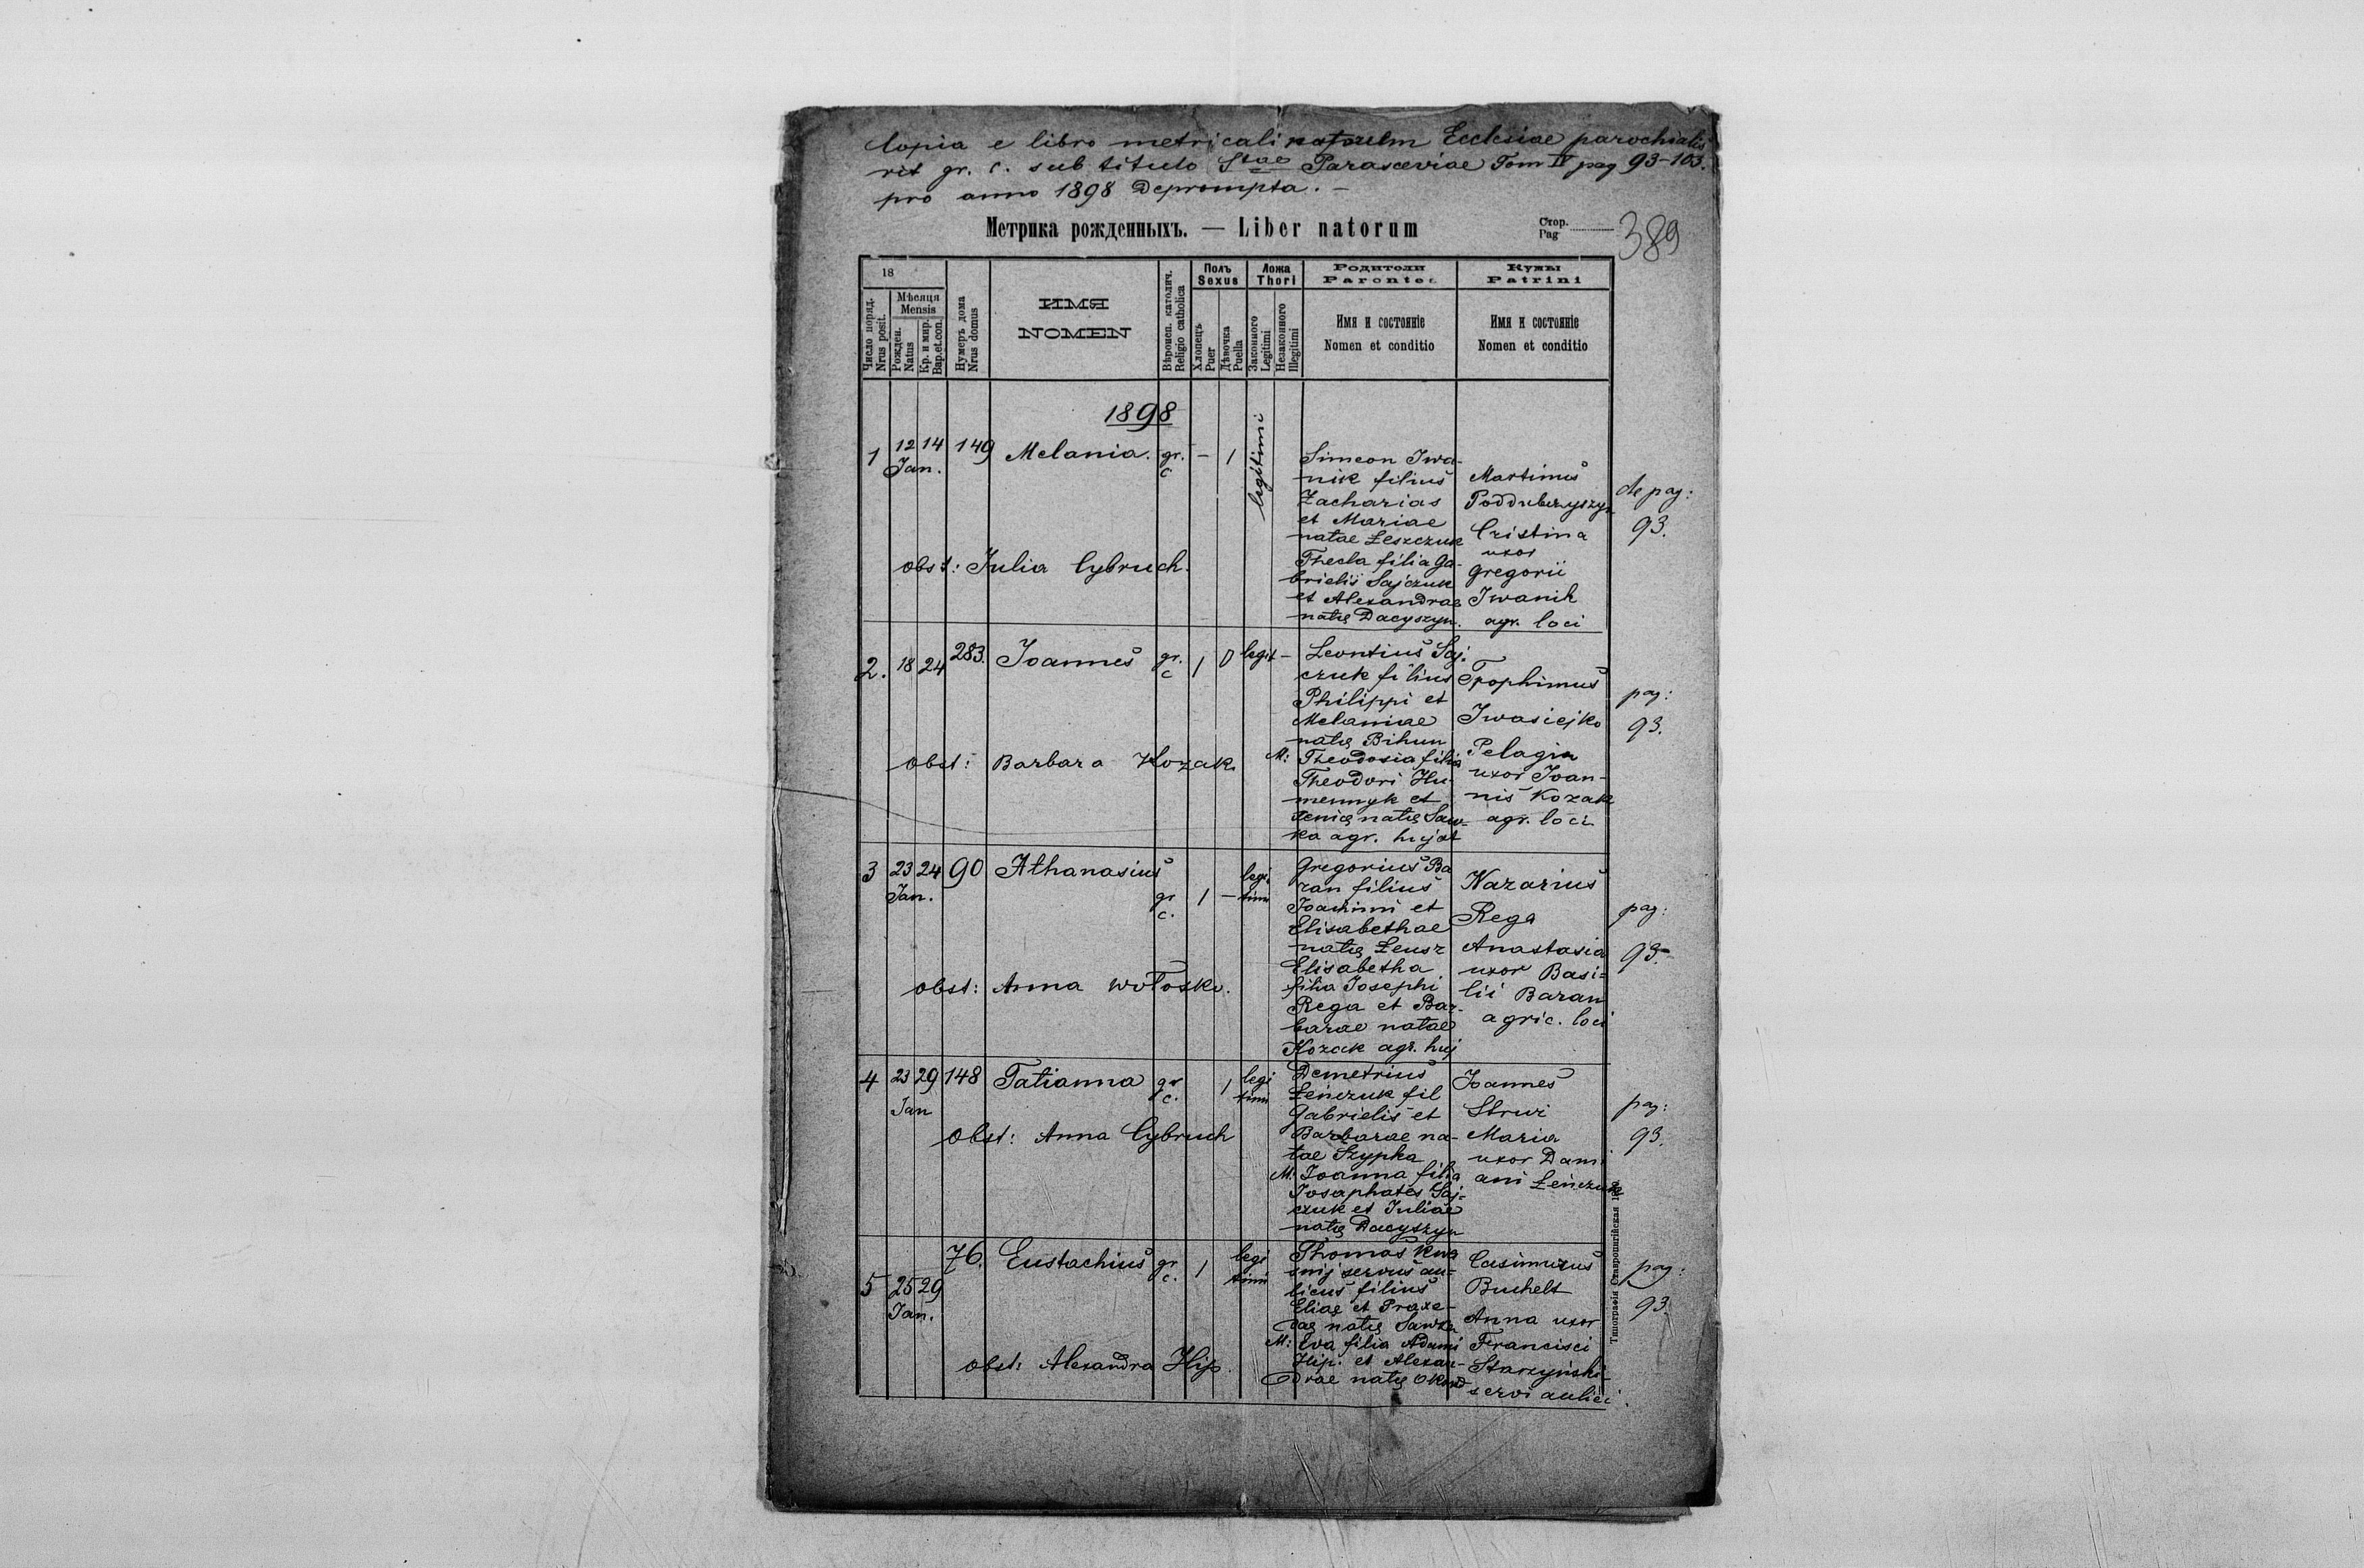 Copia e libro metricali natorum Ecclesiae parochialis
rit gr. c. sub titulo Stae Parasceviae Tom IV pag 93-103.
pro anno 1898 Deprompta. -
Метрика рожденныхъ. — Liber natorum
Стор.
Pag
389
18
Число поряд.
Nrus posit.
Мѣсяця
Mensis
Рожден.
Natus
Кр. и мир.
Bap.et.con.
Нумеръ дома
Nrus domus
ИМЯ
NOMEN
Вѣроисп. католич.
Religio catholica
Полъ
Sexus
Хлопецъ
Puer
Дѣвочка
Puella
Ложа
Thori
Законного
Legitimi
Незаконного
Illegitimi
Родители
Parentes
Имя и состоянie
Nomen et conditio
Кумы
Patrini
Имя и состоянie
Nomen et conditio
1898
1 12 14 149 Melania. gr. - 1 legitimi
Jan. c
Simeon Iwa-
nik filius
Zacharias
et Mariae
natae Leszczuk
Thecla filia Ga-
brielis Sajczuk
et Alexandrae
natę Dacyszyn.
Martinus
Poddubczyszyn
Cristina
uxor
Gregorii
Iwanik
agr. loci
de pag:
93.
obst: Julia Cybruch.
2. 18 24 283. Joannes gr. 1 0 legit -
c
Leontius Saj.
czuk filius
Philippi et
Melaniae
natę Bihun
M: Theodosia filia
Theodori Hu-
mennyk et
Xenię natę Saw-
ka agr. hujat
Trophimus
Iwasiejko
Pelagia
uxor Joan-
nis Kozak
agr. loci
pag:
93.
obst: Barbara Kozak.
3 23 24 90 Athanasius
Jan. gr 1 - legi
c. timi
Gregorius Ba
ran filius
Joachimi et
Elisabethae
natę Leusz
Elisabetha
filia Josephi
Rega et Bar-
barae natae
Kozak agr. huj
Nazarius
Rega
Anastasia
uxor Basi=
lii Baran
agric. loci
pag:
93.
obst: Anna Wołosko.
4 23 29 148 Tatianna gr 1 legi
Jan c. timi
Demetrius
Łeńczuk fil
Gabrielis et
Barbarae na-
tae Szypka
M: Joanna filia
Josaphates Saj-
czuk et Juliae
natę Dacyszyn
Joannes
Struż
Maria
uxor Dami
ani Łeńczuk
pag:
93.
obst: Anna Cybruch
5 25 29 76. Eustachius gr 1 legi
Jan. c. timi
Thomas Kwa
snij servus au=
licus filius
Eliae et Praxe-
dae natę Sawka
M: Eva filia Adami
Hip. et Alexan-
drae natę
Casimirus
Buchelt
Anna uxor
Francisci
Starzyński-
servi aulici.
pag:
93.
obst: Alexandra Hip.
Типографія Ставропигійская